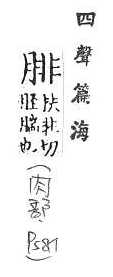 四聲篇海
腓
扶非切
脛腨也
(肉部 P587)